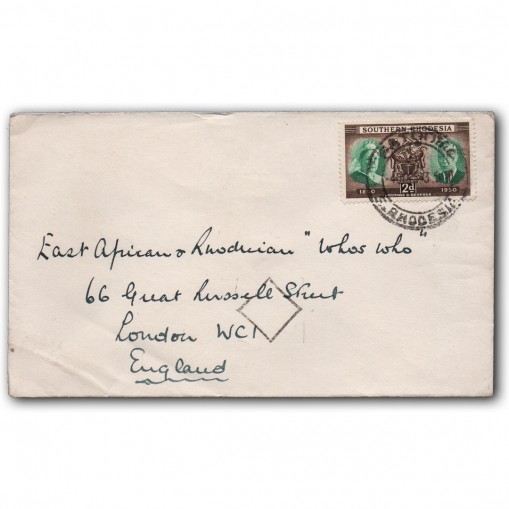 SOUTHERN RHODESIA
1890 2d 1950
POSTAGE & REVENUE
RHODESIA
East African & Rhodesian "Whos Who"
66 Great Russell Street
London WC1
England